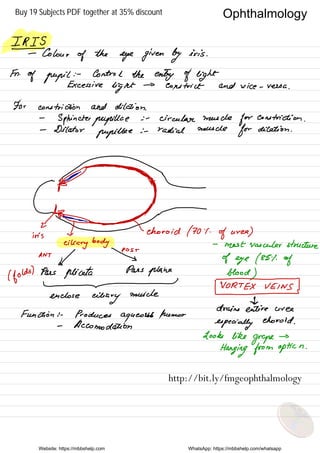 Buy 19 Subjects PDF together at 35% discount
Ophthalmology
IRIS
- Colour of the eye given by iris.
Fn. of pupil :- Control the entry of light
Excessive light → constrict and vice-versa.
For constriction and dilation
- Sphincter pupillae :- circular muscle for constriction.
- Dilator pupillae :- radial muscle for dilation.
iris
ciliary body
choroid (70% of uvea)
- most vascular structure of eye (85% of blood)
VORTEX VEINS
drains entire uvea especially choroid.
Looks like grape → Hanging from optic n.
ANT
POST
(folds) Pars plicata
Pars plana
enclose ciliary muscle
Function :- Produces aqueous humor
- Accomodation
http://bit.ly/fmgeophthalmology
Website: https://mbbshelp.com
WhatsApp: https://mbbshelp.com/whatsapp